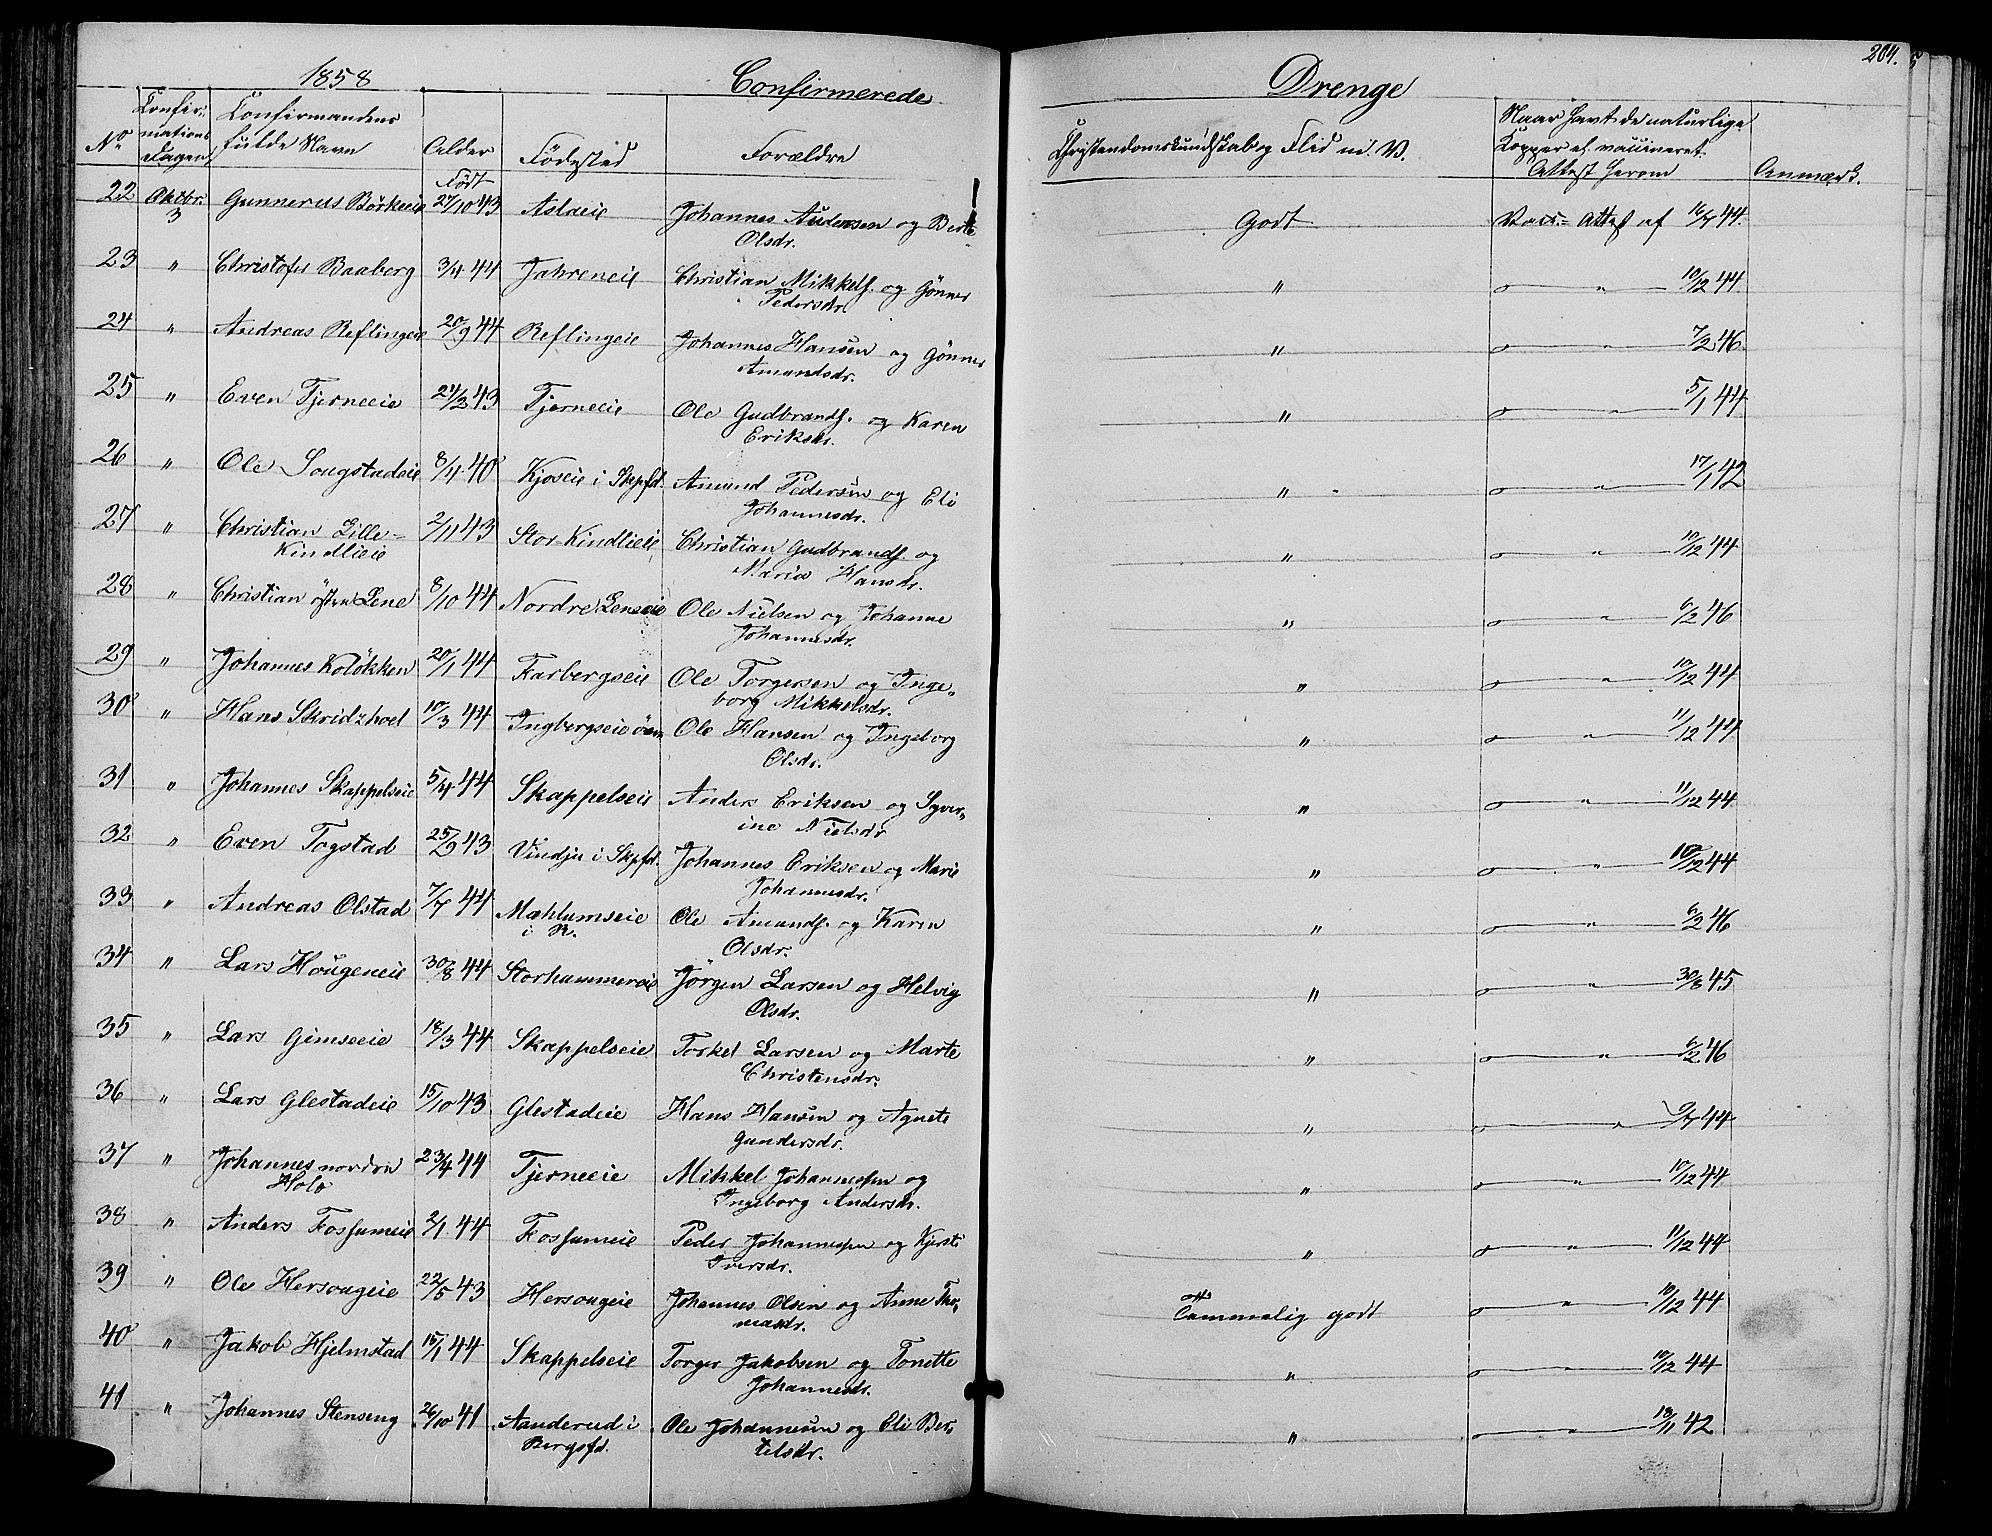 1858 Confirmerede Drenge 204.
No Confirmations Dagen Confirmandens fulde Navn Alder Födested Forældre Christendomskundskab og Flid m. V. Naar havt de naturlige Kopper el. vaccineret. Attest herom Anmærk.
Födt
22 Oktbr. 3 Gunnerus Börkeeie 27/10 43 Aslaeie Johannes Andersen og Berte Godt Vacc. Attest af 16/7 44.
Olsdr.
23 " Christofer Baaberg 3/4 44 Jahreneie Christian Mikkels. og Gönner " " 10/12 44.
Pedersdr.
24 " Andreas Reflingeie 20/9 44 Reflingeie Johannes Hansen og Gönner " " 7/2 46.
Amundsdr.
25 " Even Tjerneeie 24/3 43 Tjerneeie Ole Gudbrands. og Karen " " 5/1 44
Eriksdr.
26 " Ole Sougstadeie 8/4 40 Kjoseie i Skpfd. Amund Pedersen og Eli " " 17/1 42
Johannesdr.
27 " Christian Lille- 2/11 43 Stor-Kindlieie Christian Gudbrands. og " " 10/12 44
Kindlieie Maria Hansdr.
28 " Christian östen Lene 8/10 44 Nordre Leneeie Ole Nielsen og Johanne " " 6/2 46
Johannesdr.
29 " Johannes Kolökken 20/1 44 Farbergseie Ole Torgersen og Inge- " " 10/12 44
borg Mikkelsdr.
30 " Hans Skridshoel 10/3 44 Ingbergseie Ole Hansen og Ingeborg " " 11/12 44
Olsdr.
31 " Johannes Skappelseie 5/4 44 Skappelseie Anders Eriksen og Syver- " " 11/12 44
ine Nielsdr
32 " Even Togstad 25/9 43 Vindju i Skpfd. Johannes Eriksen og Marie " " 10/12 44
Johannesdr.
33 " Andreas Olstad 7/7 44 Mæhlumseie Ole Amunds. og Karen " " 6/2 46
i R. Olsdr.
34 " Lars Hougeneie 30/8 44 Storhammereie Jörgen Larsen og Helvig " " 30/8 45
Olsdr.
35 " Lars Gimseeie 18/3 44 Skappelseie Torkel Larsen og Marte " " 6/2 46
Christensdr.
36 " Lars Glestadeie 15/10 43 Glestadeie Hans Hansen og Agnete " " 9/7 44
Gundersdr.
37 " Johannes nordre 23/4 44 Tjerneeie Mikkel Johannessen og " " 10/12 44
Holo Ingeborg Andersdr.
38 " Anders Fossumeie 2/1 44 Fossumeie Peder Johannessen og Kjersti " " 11/12 44
Iversdr.
39 " Ole Hersougeie 22/5 43 Hersougeie Johannes Olsen og Anne Tho- Temmelig godt " 10/12 44
masdr.
40 " Jakob Hjelmstad 15/1 44 Skappelseie Torger Jakobsen og Tonette " " 10/12 44
Johannesdr.
41 " Johannes Stenseng 26/10 41 Aanderud i Ole Johannesen og Eli Ber- " " 13/11 42
Bergsfd. telsdr.